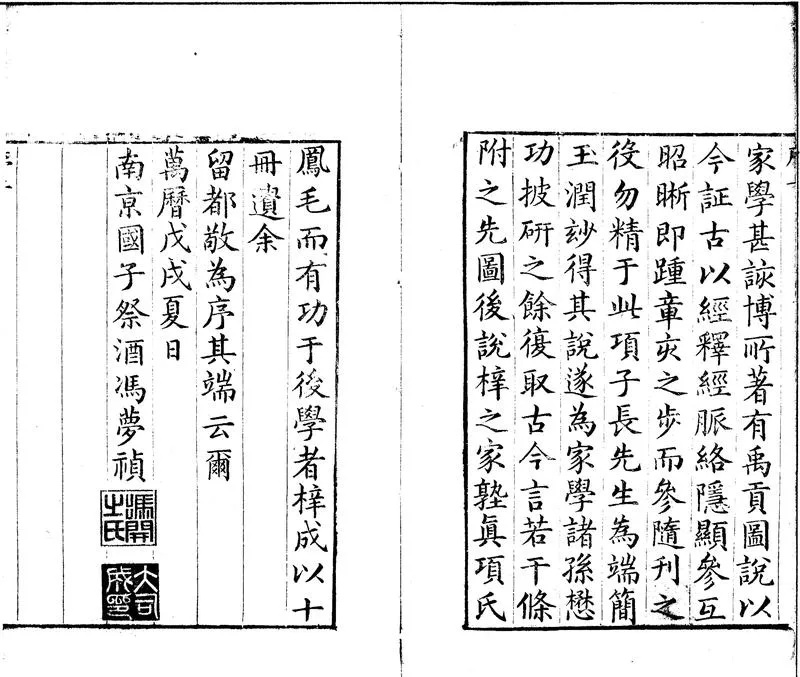 家學甚該博所著有禹貢圖說以
今証古以經釋經脈絡隱顯參互
昭晰即踵章亥之步而參隨刊之
役勿精于此項子長先生為端簡
玉潤玅得其說遂為家學諸孫懋
功披研之餘復取古今言若干條
附之先圖後說梓之家塾真項氏
鳳毛而有功于後學者梓成以十
冊遺余
留都敬為序其端云爾
萬曆戊戌夏日
南京國子祭酒馮夢禎
馮開之氏
大司成印